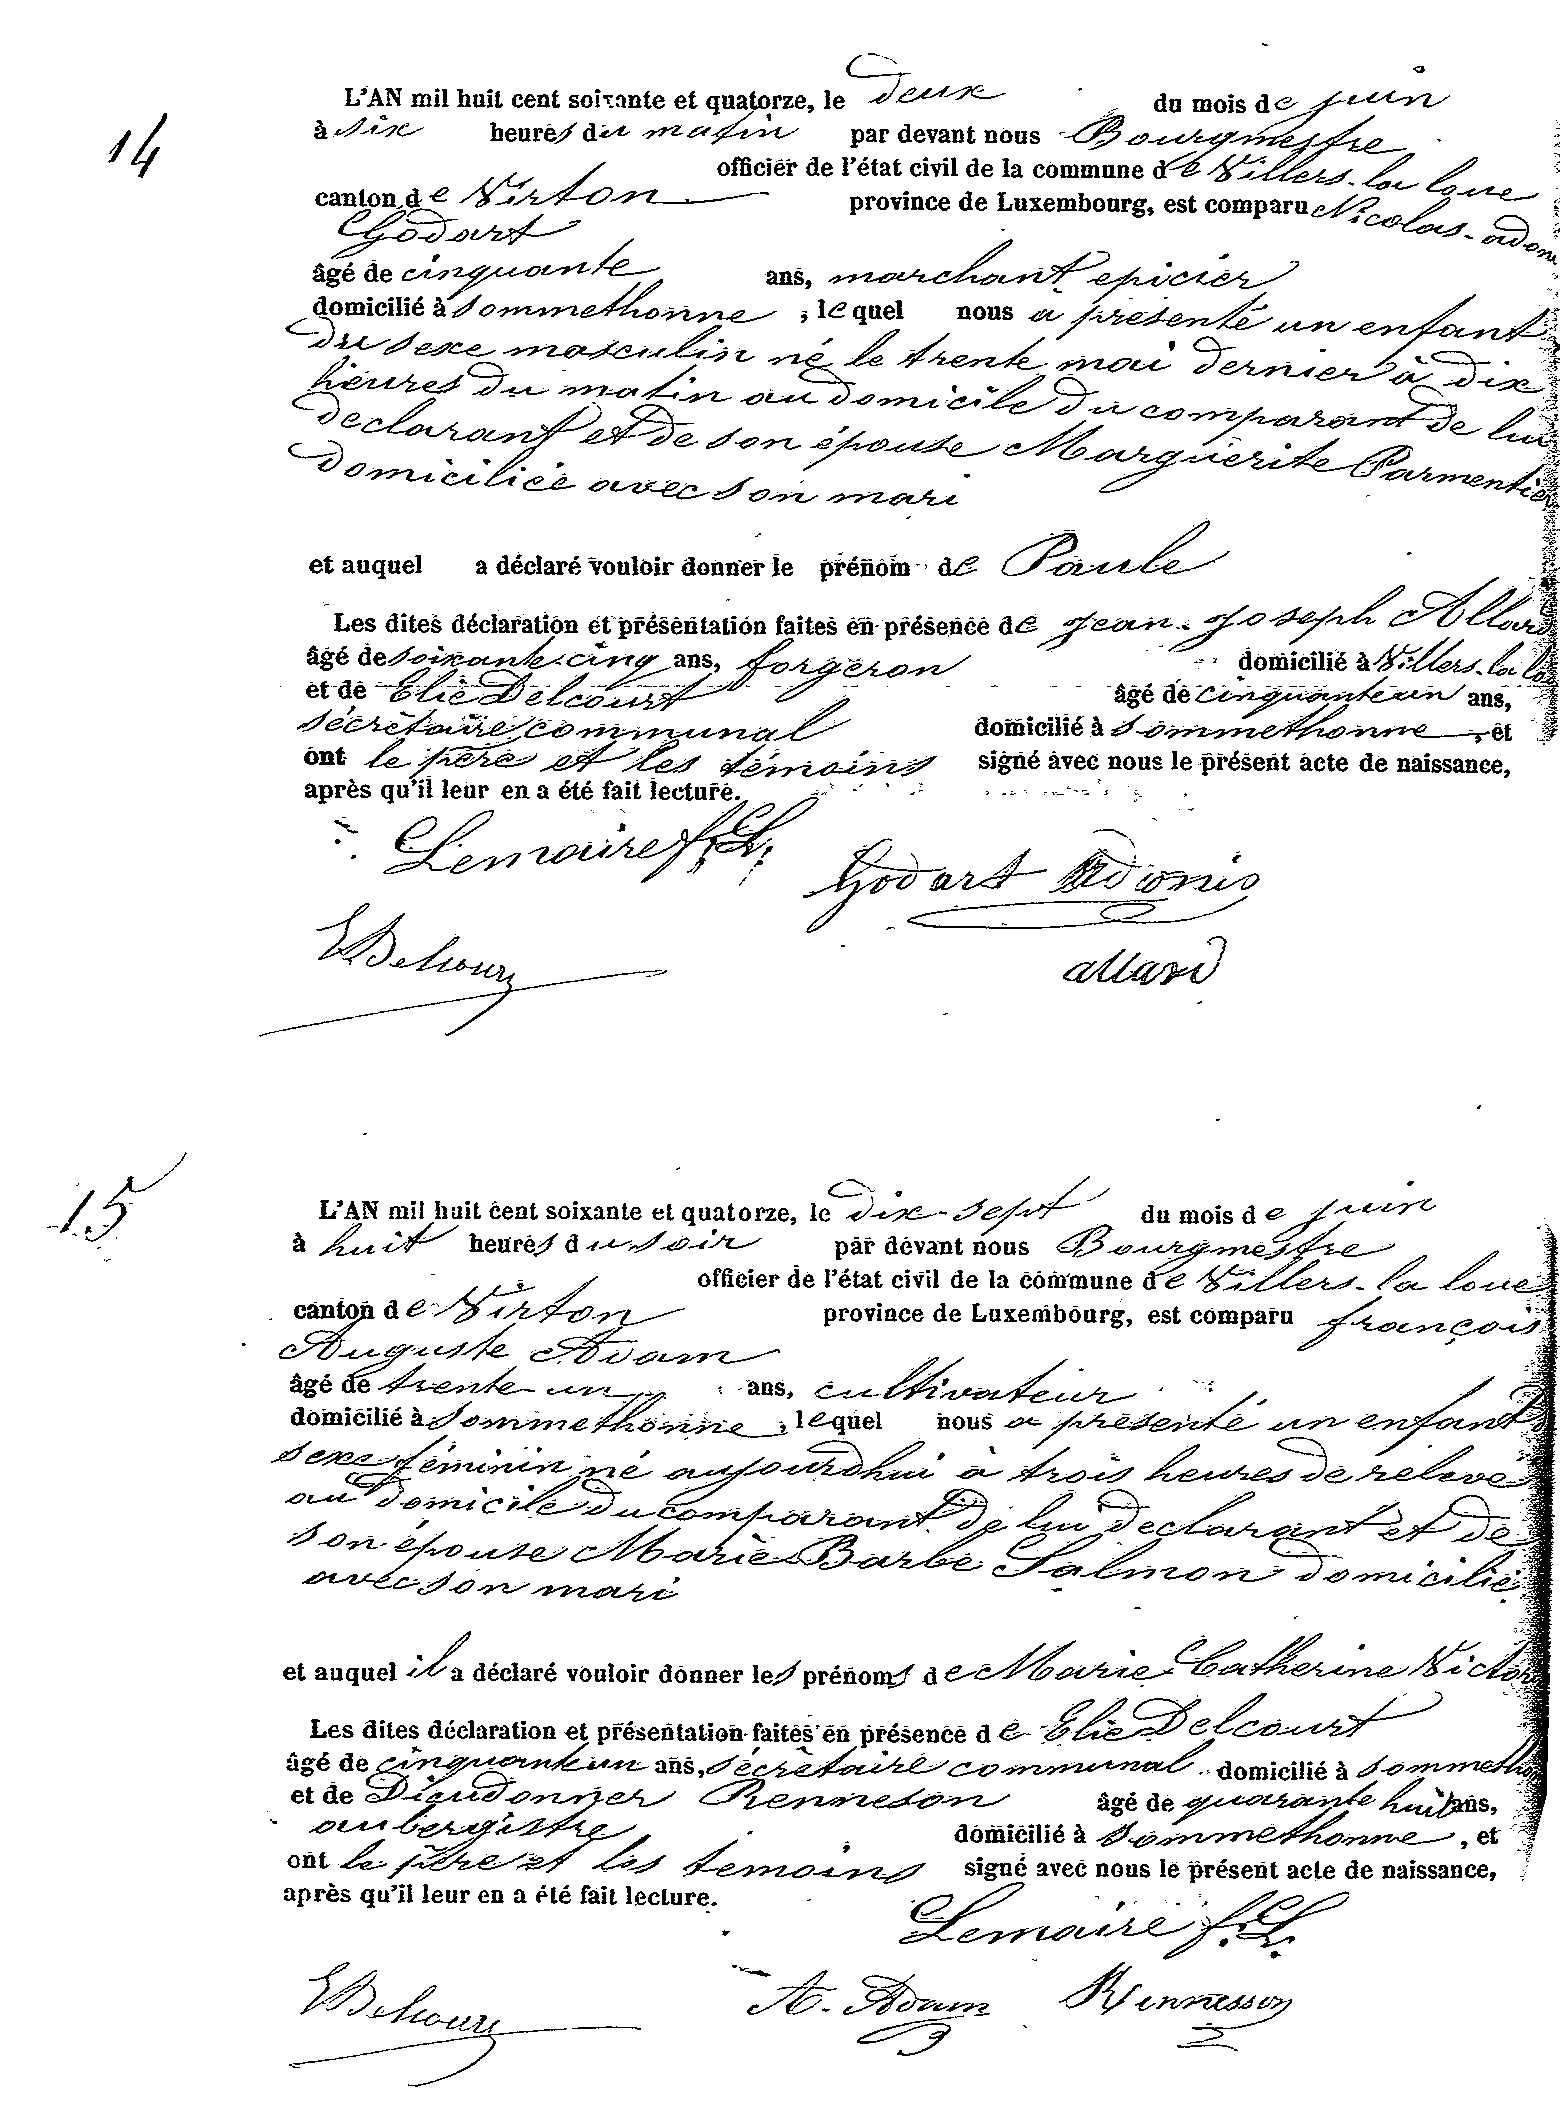 14
L'AN mil huit cent soixante et quatorze, le deux du mois de juin
à six heures du matin par devant nous Bourgmestre
officier de l'état civil de la commune de Villers-la loue
canton de Virton province de Luxembourg, est comparu Nicolas-adon
Godart
âgé de cinquante ans, marchant epicier
domicilié à Sommethonne, lequel nous a présenté un enfant
du sexe masculin né le trente mai dernier à dix
heures du matin au domicile du comparant de lui
declarant et de son épouse Marguerite Parmentier
domiciliée avec son mari
et auquel a déclaré vouloir donner le prénom de Paule
Les dites déclaration et présentation faites en présence de Jean-Joseph Allard
âgé de soixante-cinq ans, forgeron domicilié à Villers-la lo
et de Elie Delcourt âgé de cinquante un ans,
sécrétaire communal domicilié à Sommethonne, et
ont le père et les témoins signé avec nous le présent acte de naissance,
après qu'il leur en a été fait lecture.
Lemaire f.L.
Godart Adonis
EDelcourt
allard
15
L'AN mil huit cent soixante et quatorze, le dix-sept du mois de juin
à huit heures du soir par devant nous Bourgmestre
officier de l'état civil de la commune de Villers-la loue
canton de Virton province de Luxembourg, est comparu françois
Auguste Adam
âgé de trente-un ans, cultivateur
domicilié à Sommethonne, lequel nous a présenté un enfant
sexe féminin né aujourdhui à trois heures de relevé
au domicile du comparant de lui declarant et de
son épouse Marie Barbe Salmon domicilié
avec son mari
et auquel il a déclaré vouloir donner les prénoms de Marie Catherine Victor
Les dites déclaration et présentation faites en présence de Elie Delcourt
âgé de cinquante un ans, sécrétaire communal domicilié à Sommetho
et de Dieudonner Renneson âgé de quarante huit ans,
aubergistre domicilié à Sommethonne, et
ont le père et les temoins signé avec nous le présent acte de naissance,
après qu'il leur en a été fait lecture.
Lemaire f.L.
EDelcourt
A. Adam Rennesson